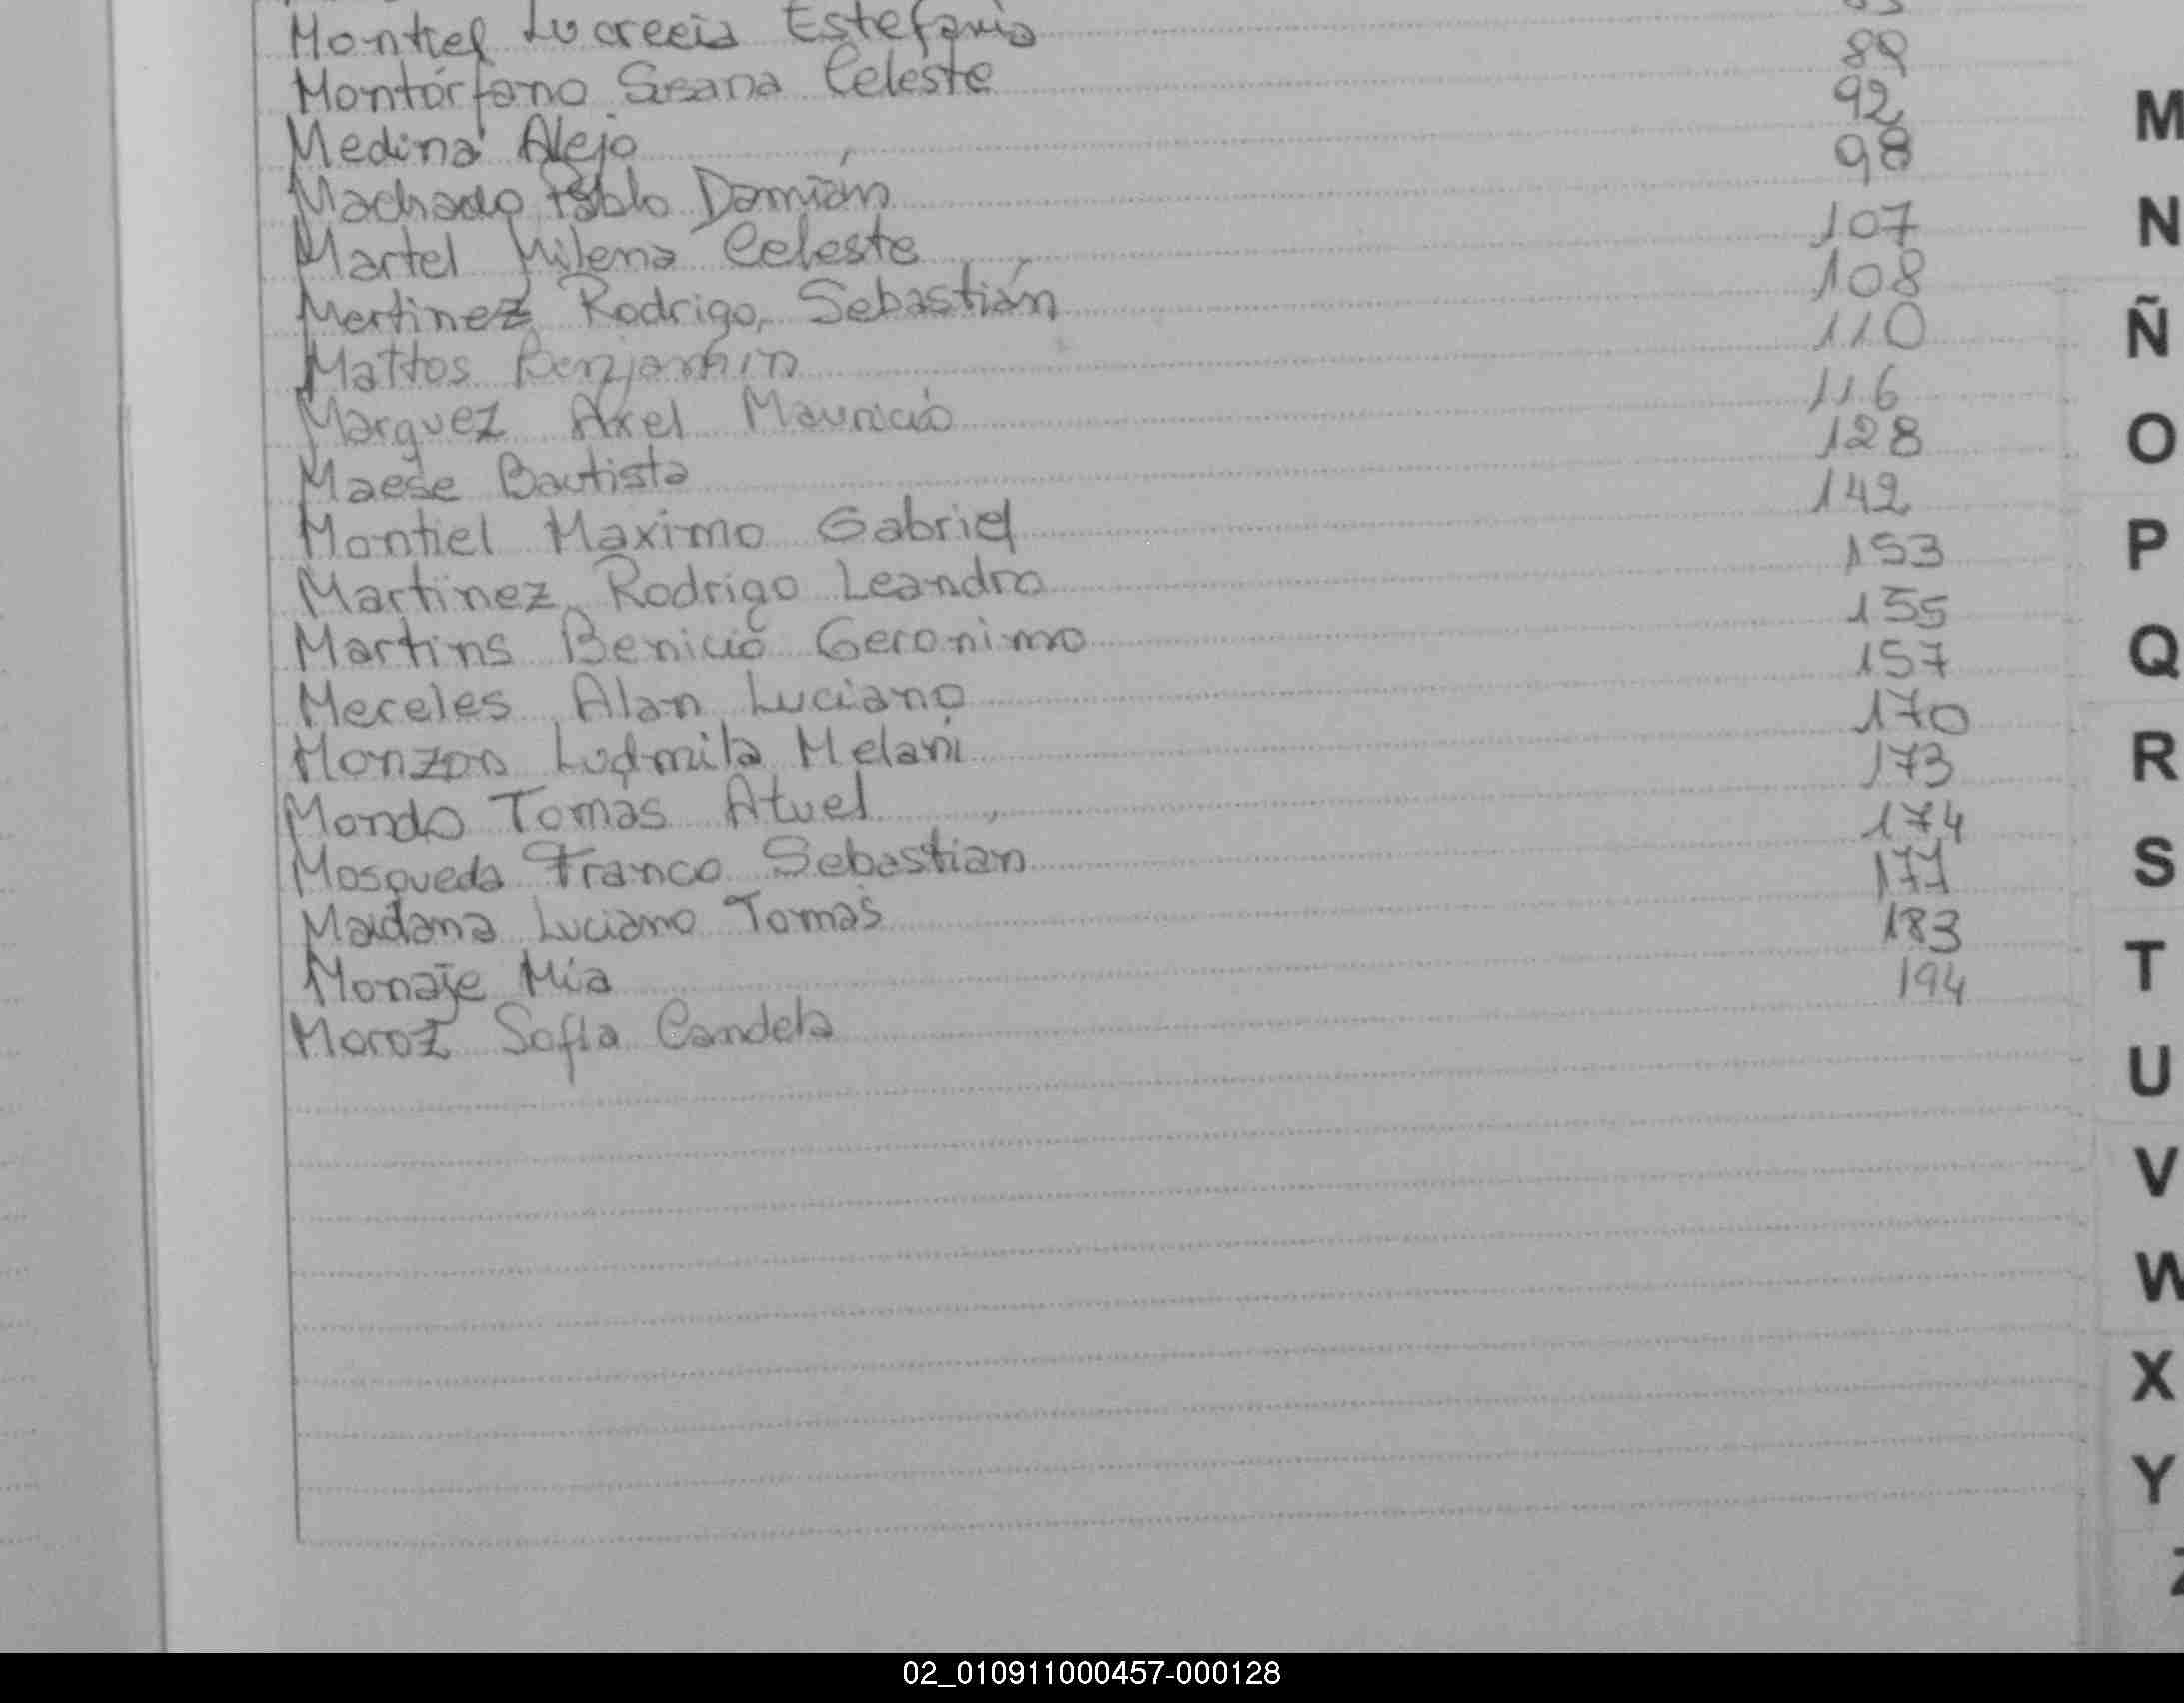 Montiel Lucrecia Estefania
Montórfano Susana Celeste 89
Medina Alejo 92
Machado Pablo Damián 98
Martel Milena Celeste 107
Martinez Rodrigo Sebastián 108
Mattos Benjamín 110
Marquez Axel Mauricio 116
Maese Bautista 128
Montiel Maximo Gabriel 142
Martinez Rodrigo Leandro 153
Martins Benicio Geronimo 155
Meceles Alan Luciano 157
Monzon Ludmila Melani 170
Mondo Tomas Atuel 173
Mosqueda Franco Sebastián 174
Maidana Luciano Tomas 177
Monaje Mia 183
Moroz Sofia Candela 194
M
N
Ñ
O
P
Q
R
S
T
U
V
W
X
Y
Z
02_010911000457-000128